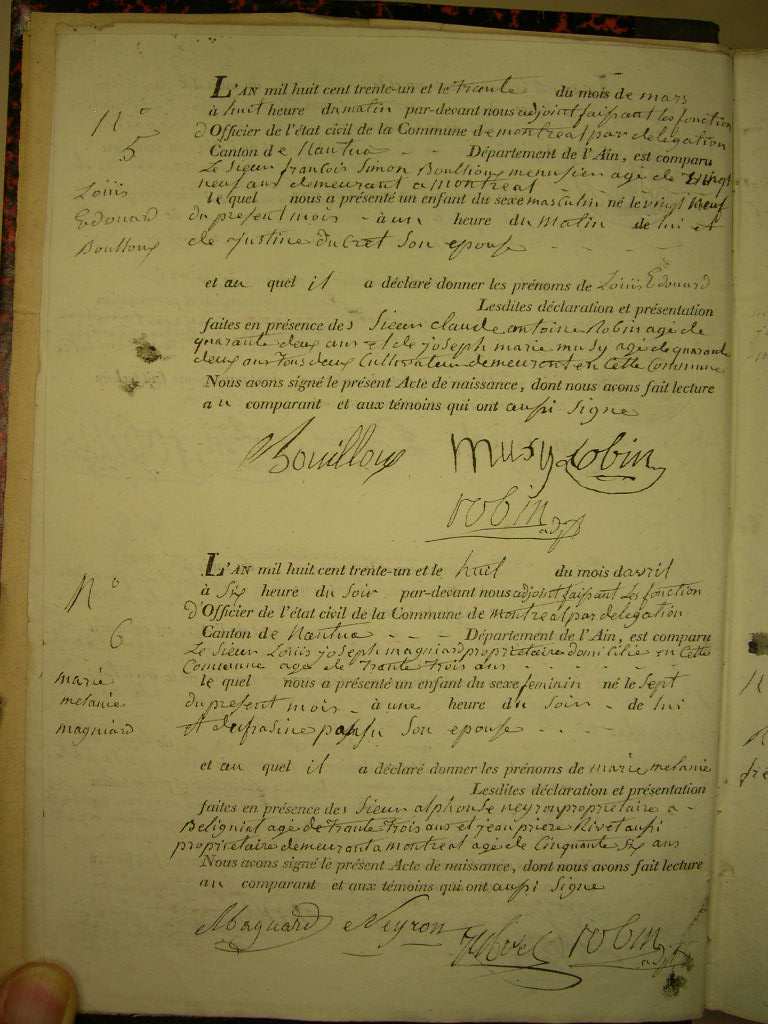 L'AN mil huit cent trente-un et le trante du mois de mars
à huit heure du matin par-devant nous adjoint faisant les fonction
d'Officier de l'état civil de la Commune de montreal par delegation
Canton de Nantua - - Département de l'Ain, est comparu
Le Sieur francois Simon Boulloux menusien agé de vingt
neuf ans demeurant a montreal
le quel nous a présenté un enfant du sexe masculin né le vingt neuf
du present mois - à un heure du matin de lui et
de justine ducret son epouse - - - -
et au quel il a déclaré donner les prénoms de Louis Edouard
Lesdites déclaration et présentation
faites en présence des Sieur claude antoine Robin agé de
quarante deux ans et de joseph marie musy agé de quarante
deux ans tous deux Cultivateur demeurent en cette Commune
Nous avons signé le présent Acte de naissance, dont nous avons fait lecture
au comparant et aux témoins qui ont aussi signe
N° 5
Louis
Edouard
Boulloux
Bouilloux Musy Robin
robin adjt
L'AN mil huit cent trente-un et le huit du mois davril
à Six heure du Soir par-devant nous adjoint faisant les fonction
d'Officier de l'état civil de la Commune de montreal par delegation
Canton de Nantua - - - Département de l'Ain, est comparu
Le Sieur Louis joseph magniard propriétaire domicilié en Cette
Commune agé de trante trois ans - - - -
le quel nous a présenté un enfant du sexe feminin né le Sept
du present mois - à une heure du Soir - de lui
et defrasine son epouse - - - -
et au quel il a déclaré donner les prénoms de marie melanie
Lesdites déclaration et présentation
faites en présence des Sieur alphonse neyron proprietaire a -
Belignial agé de trante trois ans et jean priere Rivet aussi
propriretaire demeurent a montreal agé de Cinquante Six ans
Nous avons signé le présent Acte de naissance, dont nous avons fait lecture
au comparant et aux témoins qui ont aussi signe
N° 6
marie
melanie
magniard
Magniard Neyron robin adjt